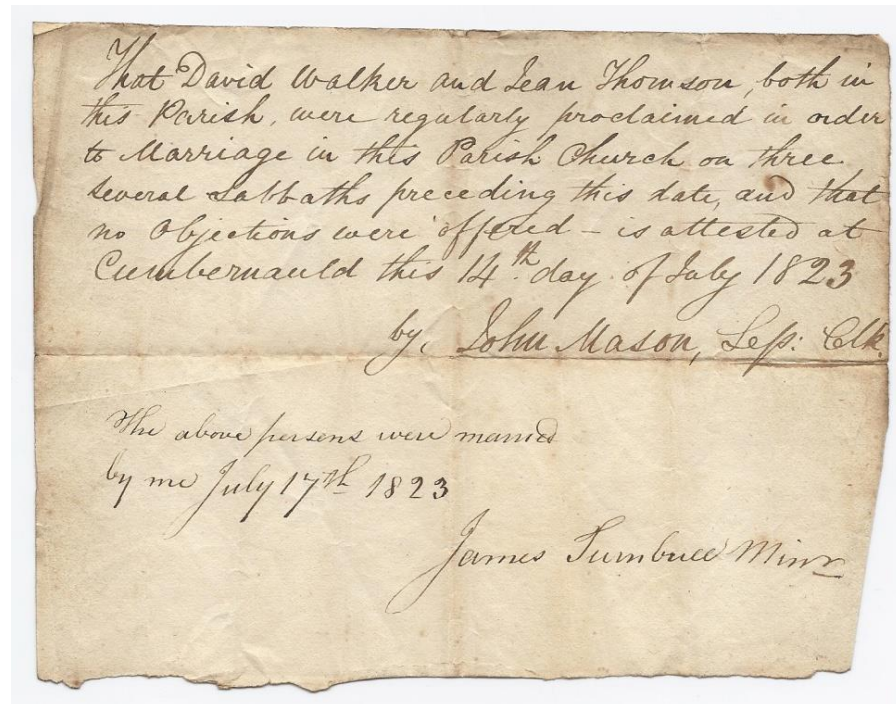 That David Walker and Jean Thomson, both in
this Parish, were regularly proclaimed in order
to Marriage in this Parish Church on three
several Sabbaths preceding this date, and that
no Objections were offered – is attested at
Cumbernauld this 14th. day of July 1823
by, John Mason, Sess: Clk.
The above persons were married
by me July 17th 1823
James Turnbull Minr